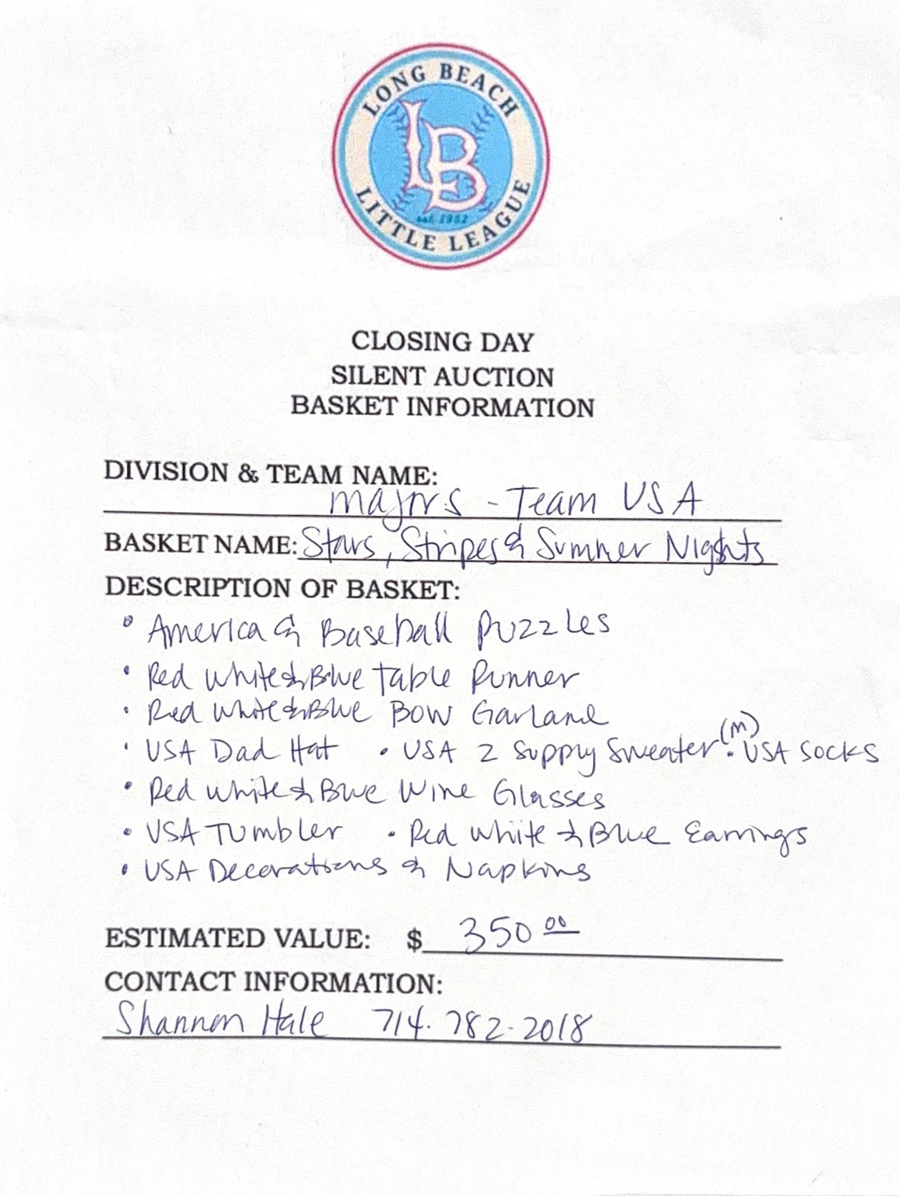 LONG BEACH
LB
est. 1952
LITTLE LEAGUE
CLOSING DAY
SILENT AUCTION
BASKET INFORMATION
DIVISION & TEAM NAME:
Majors - Team USA
BASKET NAME: Stars, Stripes & Summer Nights
DESCRIPTION OF BASKET:
• America & Baseball Puzzles
• Red White & Blue Table Runner
• Red White & Blue Bow Garland
• USA Dad Hat • USA Z Supply Sweater (M) • USA Socks
• Red White & Blue Wine Glasses
• USA Tumbler • Red White & Blue Earrings
• USA Decorations & Napkins
ESTIMATED VALUE: $ 350 00
CONTACT INFORMATION:
Shannon Hale 714.782.2018